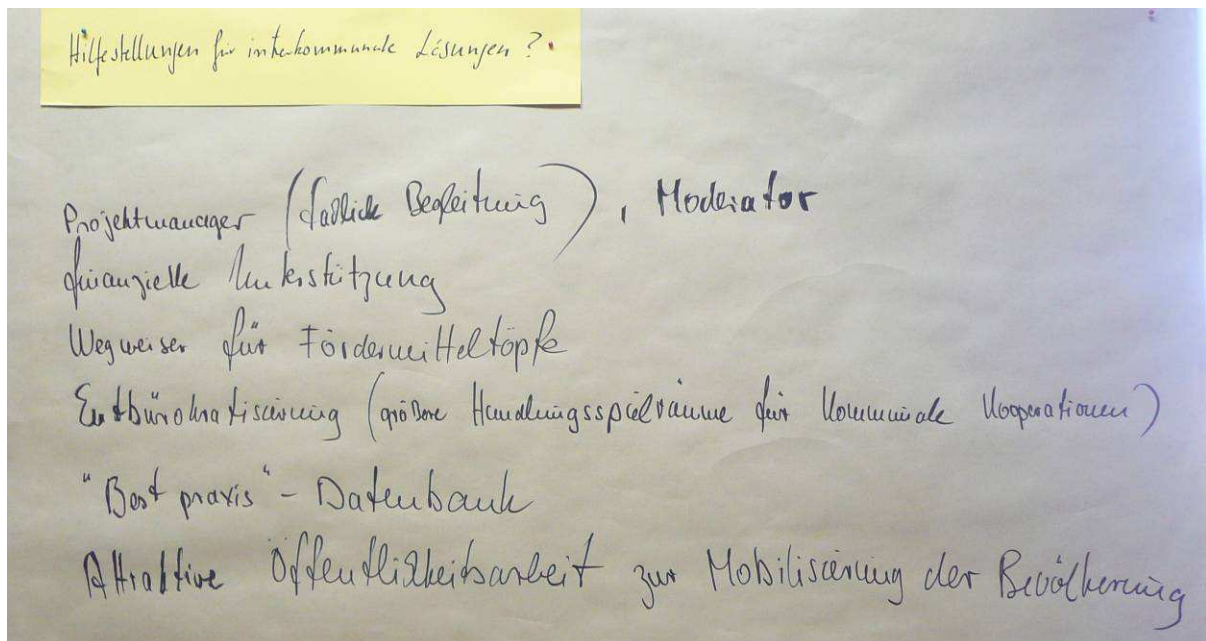 Hilfestellungen für interkommunale Lösungen?
Projektmanager (fachliche Begleitung), Moderator
finanzielle Unterstützung
Wegweiser für Fördermitteltöpfe
Entbürokratisierung (größere Handlungsspielräume für kommunale Kooperationen)
"Best praxis" - Datenbank
Attraktive Öffentlichkeitsarbeit zur Mobilisierung der Bevölkerung